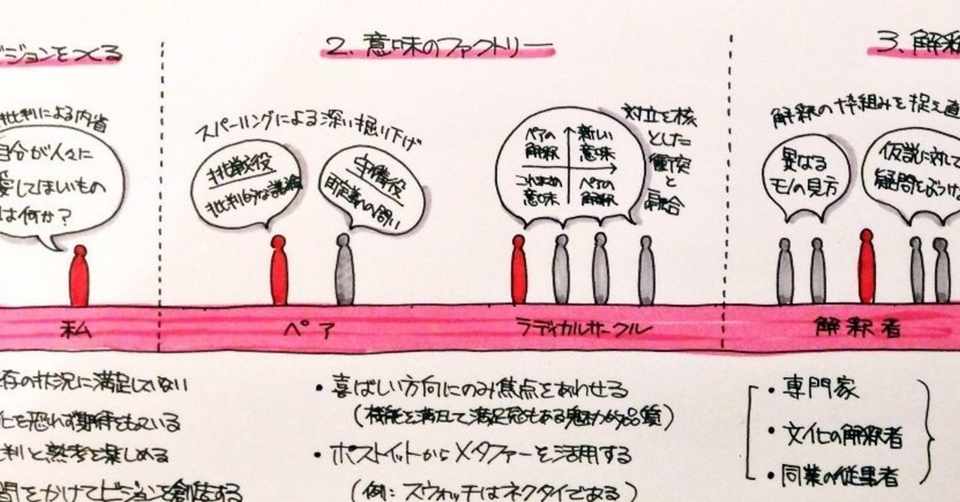 ビジョンをつくる
批判による内省
自分が人々に
愛してほしいもの
は何か?
私
存の状況に満足していない
化を恐れず期待をもっている
判と熟考を楽しめる
間をかけてビジョンを創造する
2. 意味のファクトリー
スパーリングによる深い掘り下げ
挑戦役
批判的な議論
守備役
再定義の問い
ペア
ペアの
解釈
新しい
意味
これまめ
意味
ペアの
解釈
対立を核
とした
衝突と
融合
ラディカルサークル
・喜ばしい方向にのみ焦点をあわせる
(機能を満たして満足感もある魅力的品質)
・ポストイットからメタファーを活用する
(例: スウォッチはネクタイである)
3. 解釈
解釈の枠組みを捉え直
異なる
モノの見方
仮説に対して
疑問をなげ
解釈者
・専門家
・文化の解釈者
・同業の従事者